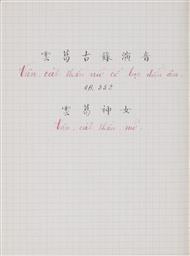 雲葛古錄演音
Vân cát thần nữ cổ lục diễn âm.
AB. 352
雲葛神女
Vân cát thần nữ